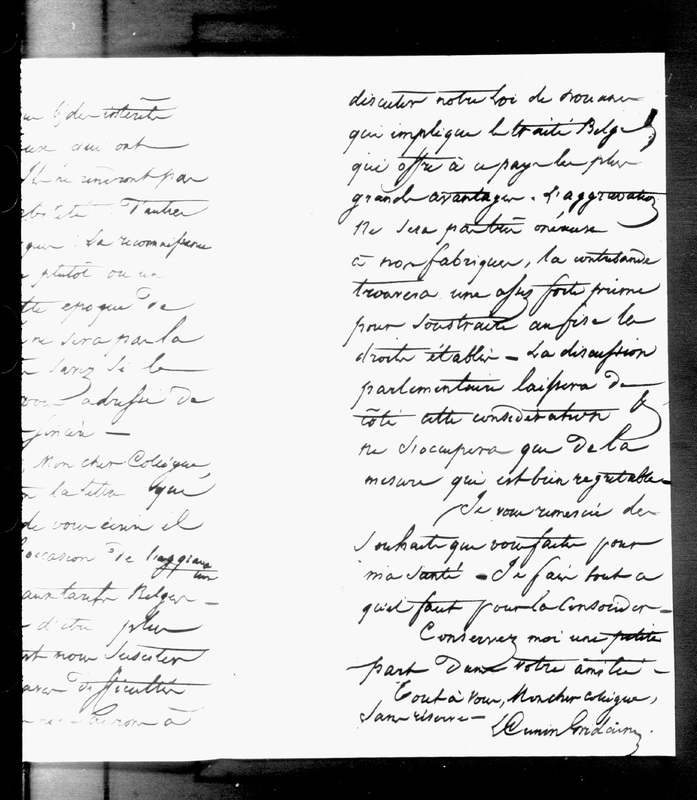 des intérêts
qui ont
Ils ne rendront pas
D'autres
La reconnaissance
plutôt ou un
époque de
ne sera pas la
Si le
adresse de

Mon cher Collègue,
la lettre que
de vous écrire il
occasion de l'aggrava
tion
aux tarifs Belges –
d'être plus
nous susciter
difficultés
aurons à
discuter notre loi de Douanes
qui implique le traité Belge &
qui offre à ce pays les plus
grands avantages. L'aggravation
ne sera pas très onéreuse
à nos fabriques, la contrebande
trouvera une assez forte prime
pour soustraire au fisc les
droits établis – La discussion
parlementaire laissera de
côté cette considération &
ne s'occupera que de la
mesure qui est bien regrettable –
Je vous remercie des
souhaits que vous faites pour
ma santé – Je fais tout ce
qu'il faut pour la Consolider –
Conservez moi une petite
part dans votre amitié –
Tout à vous, Mon cher collègue,
sans réserve –
LCunin Gridaine